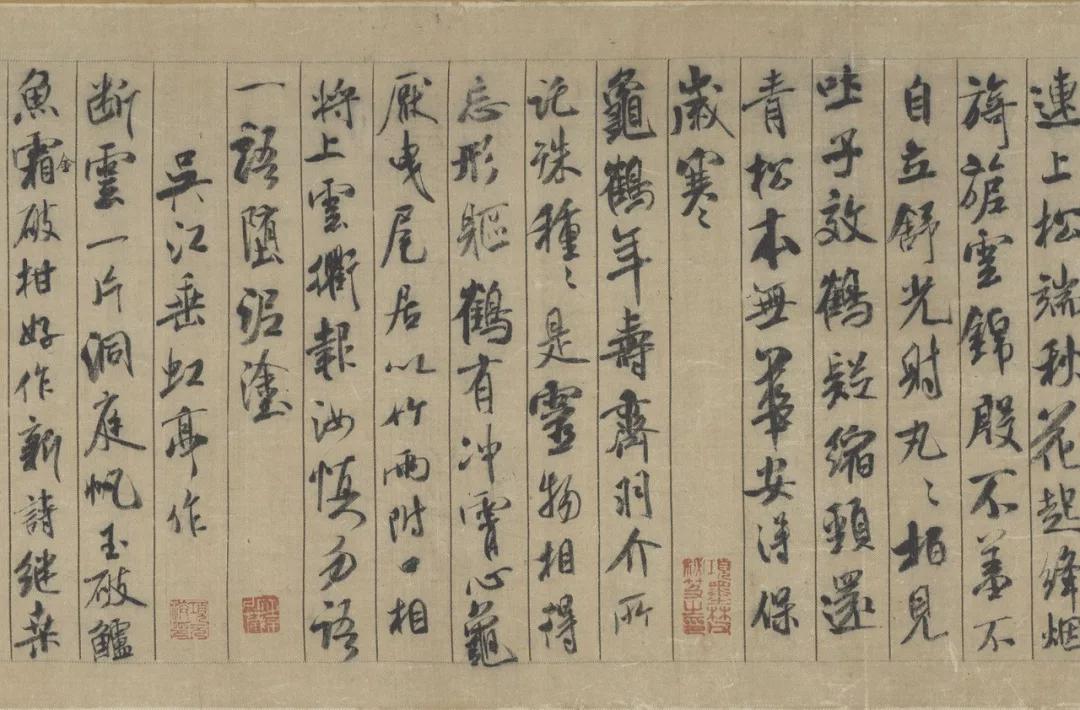 連上松端秋花起絳烟
旖旎雲錦殷不羞不
自立舒光射丸〻柏見
吐子效鶴疑縮頸還
青松本無華安得保
歲寒〻
龜鶴年壽齊羽介所
託殊種〻是靈物相得
忘形軀鶴有沖霄心龜
厭曳尾居以竹兩附口相
將上雲衢報汝慎勿語
一語墮泥塗
吳江垂虹亭作
断雲一片洞庭帆玉破鱸
魚霜金破柑好作新詩継桒